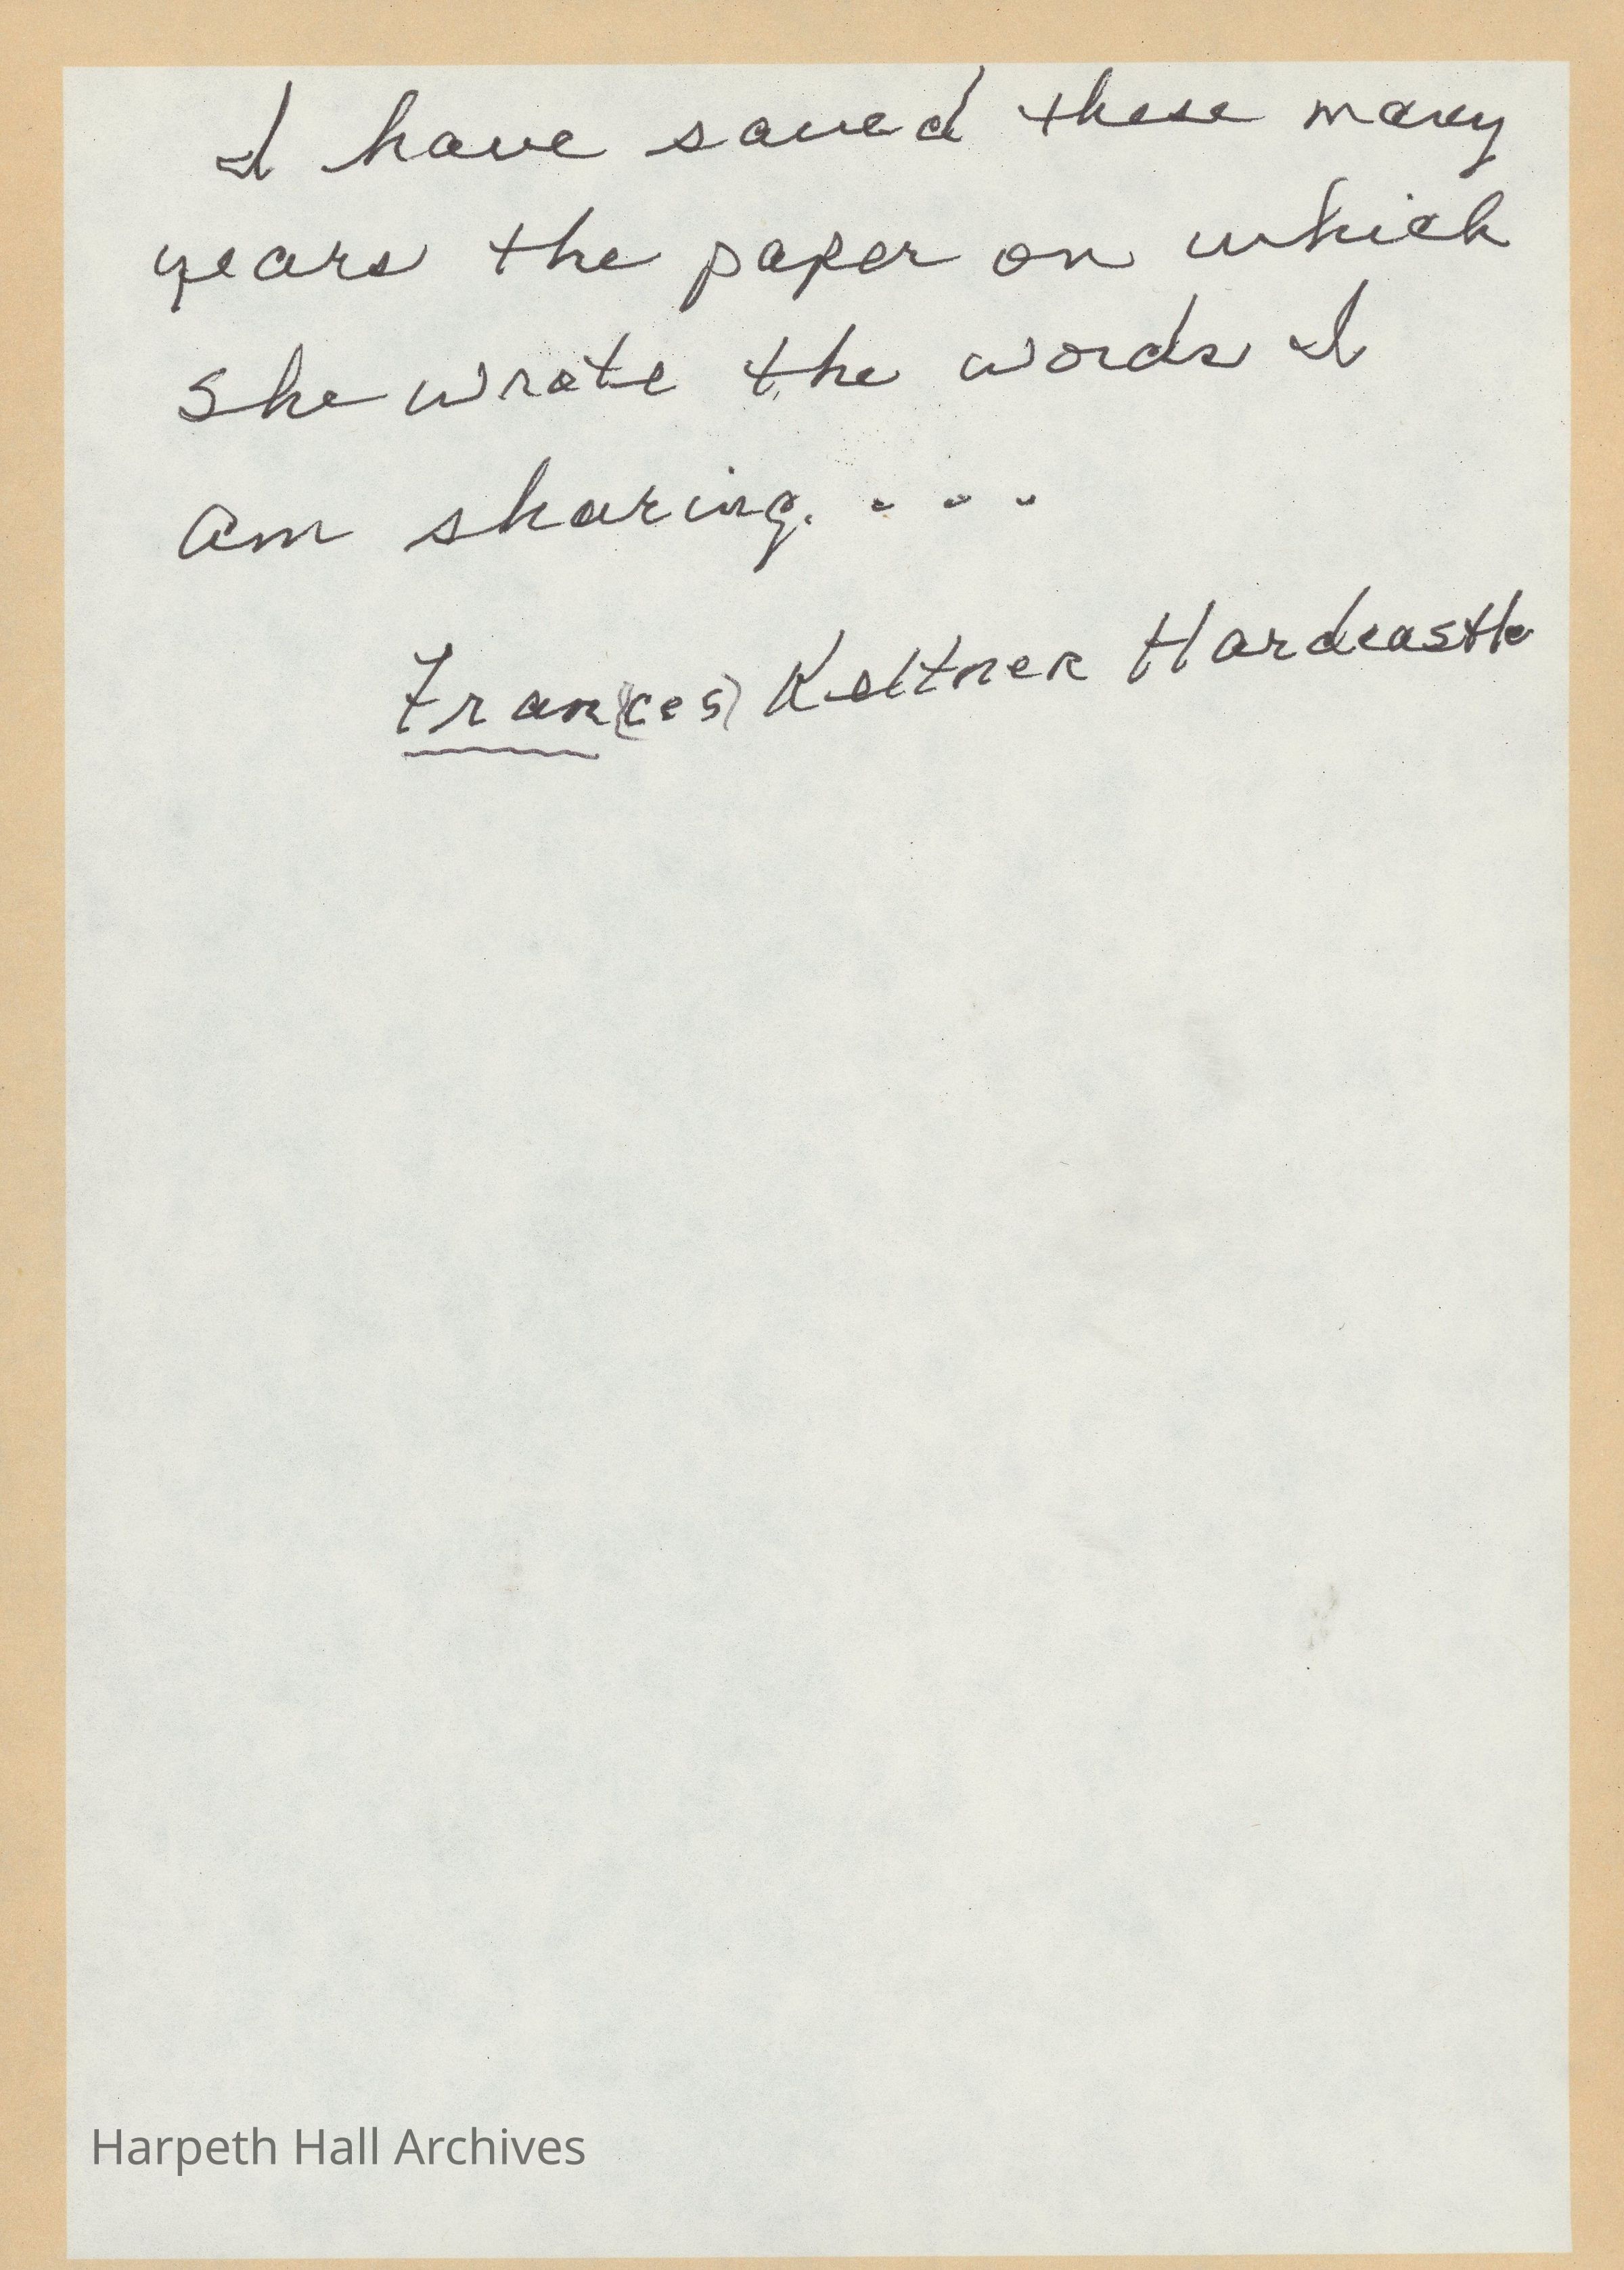 I have saved these many
years the paper on which
she wrote the words I
am sharing. . . .
Fran(ces) Keltner Hardcastle
Harpeth Hall Archives